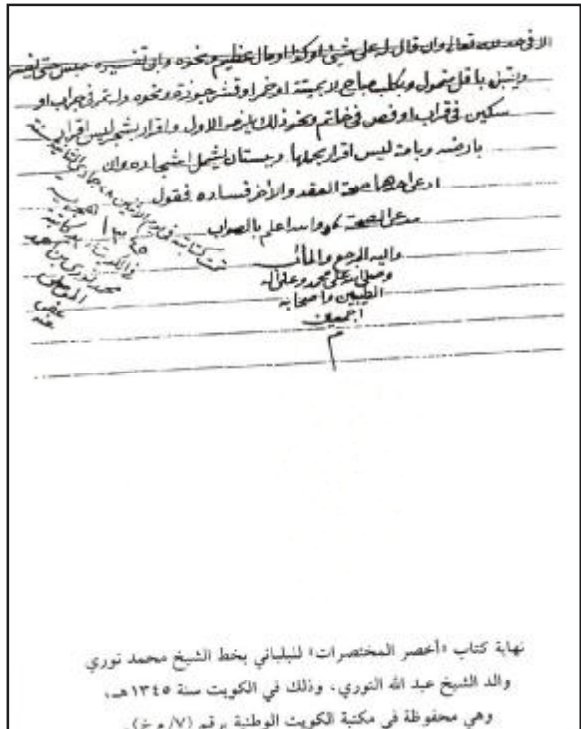 الا في حد لله تعالى وان قال له علي شيء او كذا او مال عظيم ونحوه وابى تفسيره حبس حتى يفسر
ويقبل باقل متمول وبكلب مباح لا بميتة او خمر او قشر جوزة ونحوه وله تمر في جراب او
سكين في قراب او فص في خاتم ونحو ذلك يلزمه الاول واقرار بشجر ليس اقرار
بارضه وبامة ليس اقرار بحملها وببستان يشمل اشجاره وان
ادعى احدهما صحة العقد والاخر فساده فقول
مدعي الصحة والله اعلم بالصواب
واليه المرجع والمآب
وصلى الله على محمد وعلى آله
الطيبين واصحابه
اجمعين
م
تمت كتابته في يوم الاثنين جمادى الثانية سنة
١٣٤٥ هجرية
في الكويت
محمد نوري بن احمد
الموصلي
عفي
عنه
نهاية كتاب «أخصر المختصرات» للبلباني بخط الشيخ محمد نوري
والد الشيخ عبد الله النوري، وذلك في الكويت سنة ١٣٤٥هـ،
وهي محفوظة في مكتبة الكويت الوطنية برقم (٧/م خ).